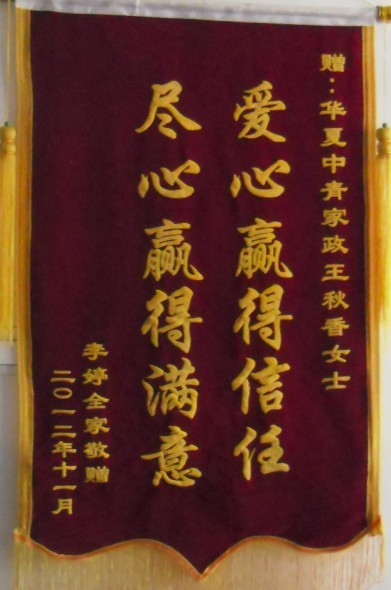 赠：华夏中青家政王秋香女士
爱心赢得信任
尽心赢得满意
李婷全家敬赠
二〇一二年十一月